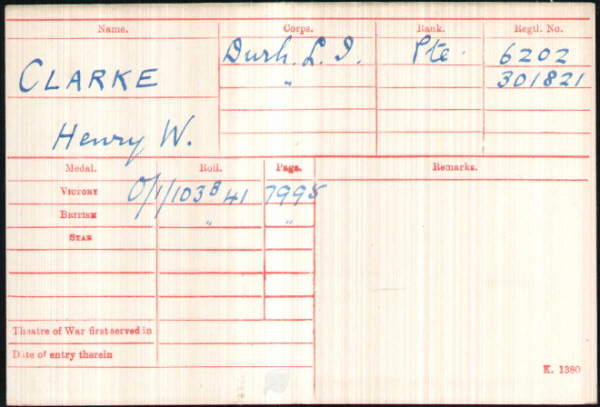 Name. Corps. Rank. Regtl. No.
CLARKE Durh. L. I. Pte. 6202
" 301821
Henry W.
Medal. Roll. Page. Remarks.
VICTORY O/1/103 B 41 7995
BRITISH " "
STAR
Theatre of War first served in
Date of entry therein
K. 1380